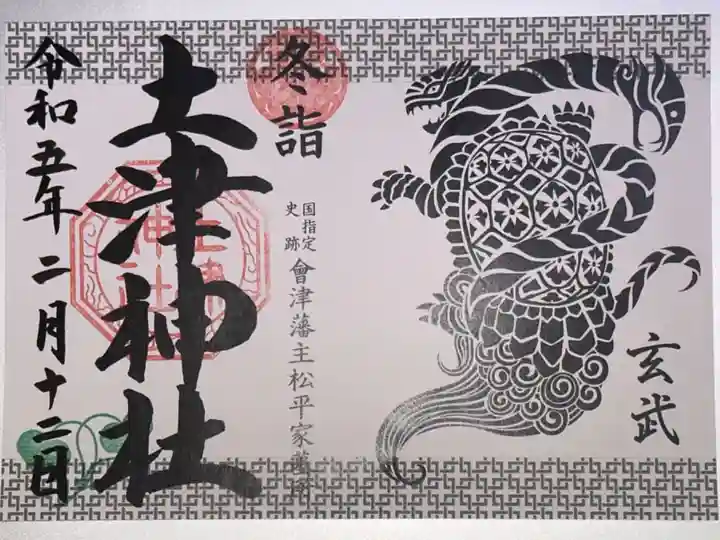 冬詣
玄武
国指定
史跡
會津藩主松平家墓所
土津神社
土津
神社
令和五年二月十二日